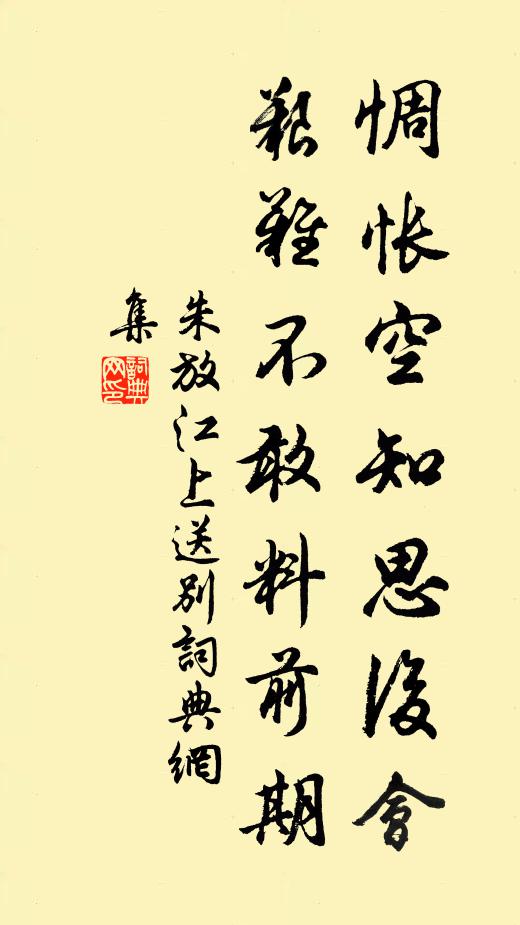 惆悵空知思後會
艱難不敢料前期
朱放江上送别詞典網
集
詞典
网印